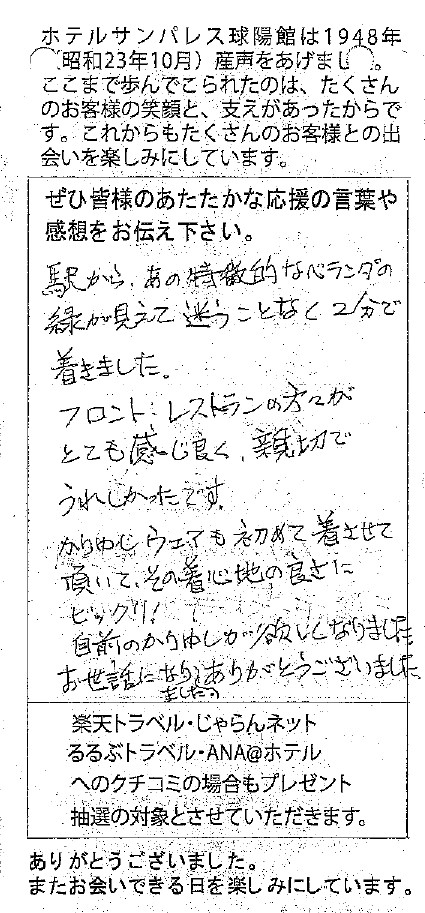 ホテルサンパレス球陽館は1948年
(昭和23年10月）産声をあげました。
ここまで歩んでこられたのは、たくさん
のお客様の笑顔と、支えがあったからで
す。これからもたくさんのお客様との出
会いを楽しみにしています。
ぜひ皆様のあたたかな応援の言葉や
感想をお伝え下さい。
駅から、あの特徴的なベランダの
緑が見えて迷うことなく2分で
着きました。
フロント:レストランの方々が
とても感じ良く、親切で
うれしかったです。
かりゆしウェアも初めて着させて
頂いて、その着心地の良さに
ビックリ!
自前のかりゆしが欲しくなりました
お世話になり ありがとうございました
ました。
楽天トラベル・じゃらんネット
るるぶトラベル・ANA@ホテル
へのクチコミの場合もプレゼント
抽選の対象とさせていただきます。
ありがとうございました。
またお会いできる日を楽しみにしています。